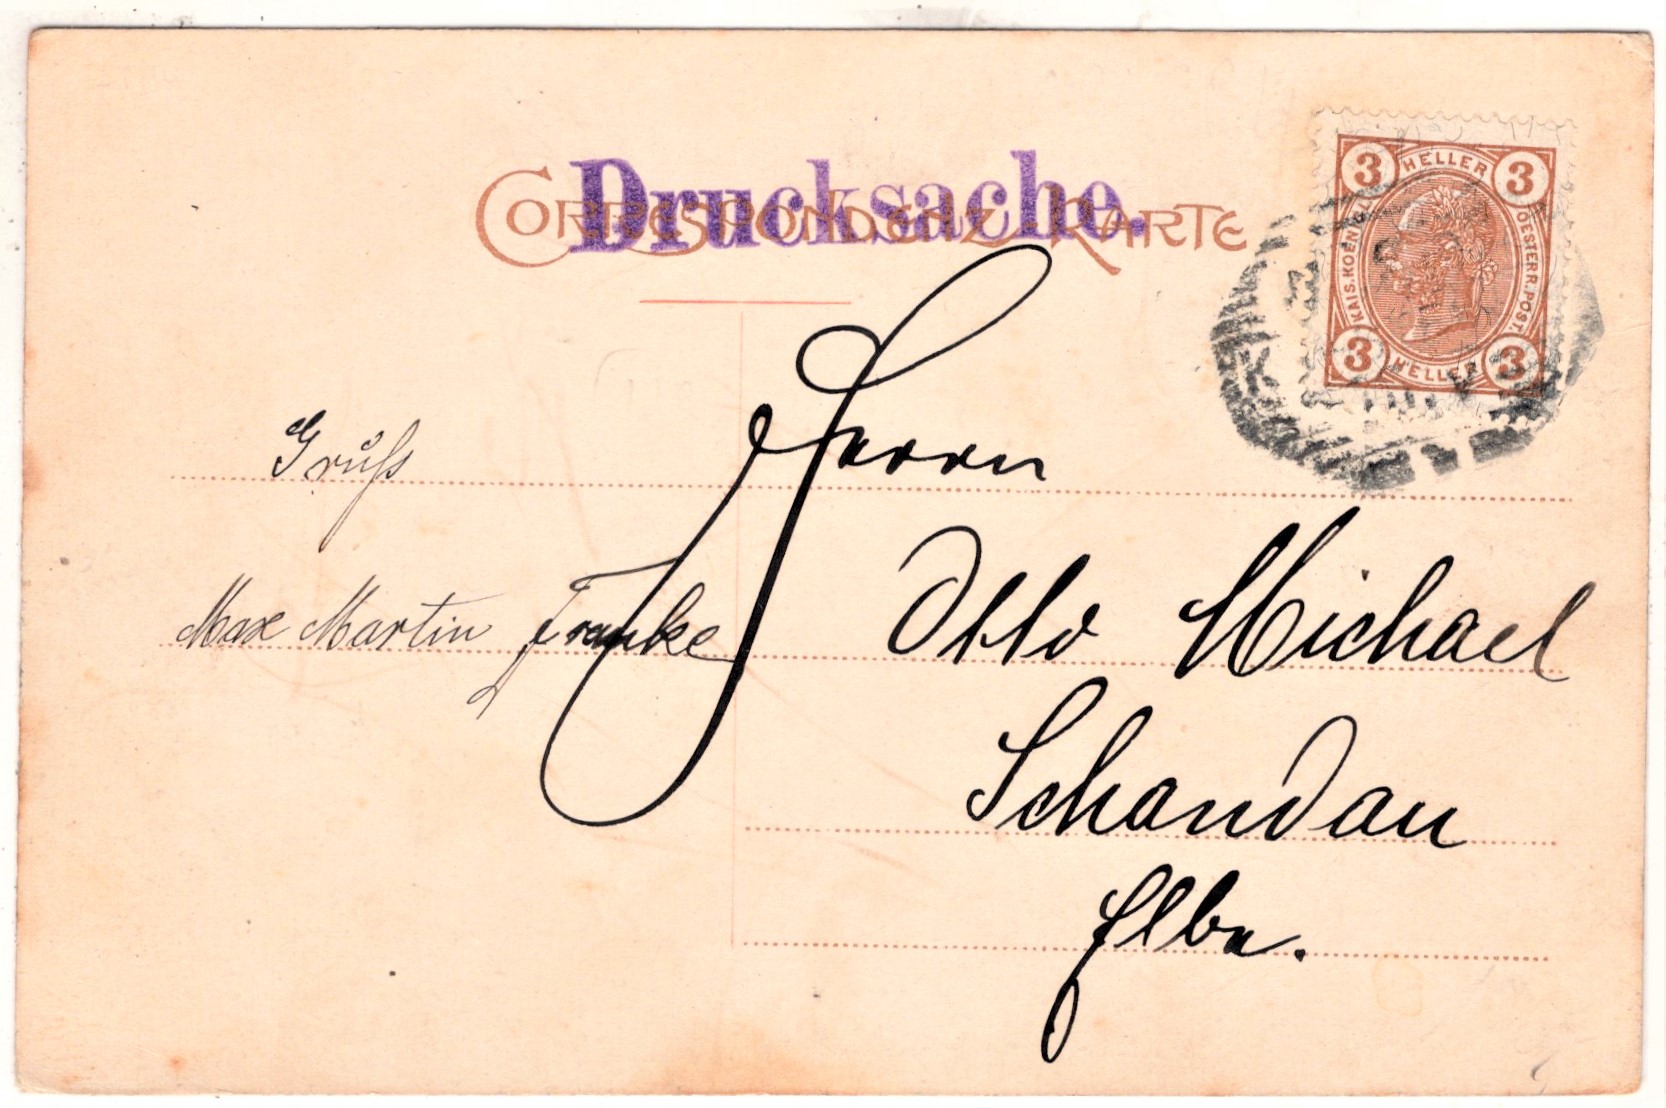 CORRESPONDENZ KARTE
Drucksache.
3 HELLER 3
KAIS. KOENIGL.
OESTERR. POST.
3 HELLER 3
Gruß
Max Martin Franke
Herrn
Otto Michael
Schandau
Elbe.